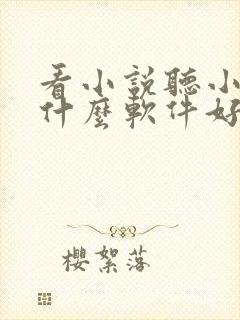 看小説聽小
什麼軟件好
櫻絮落